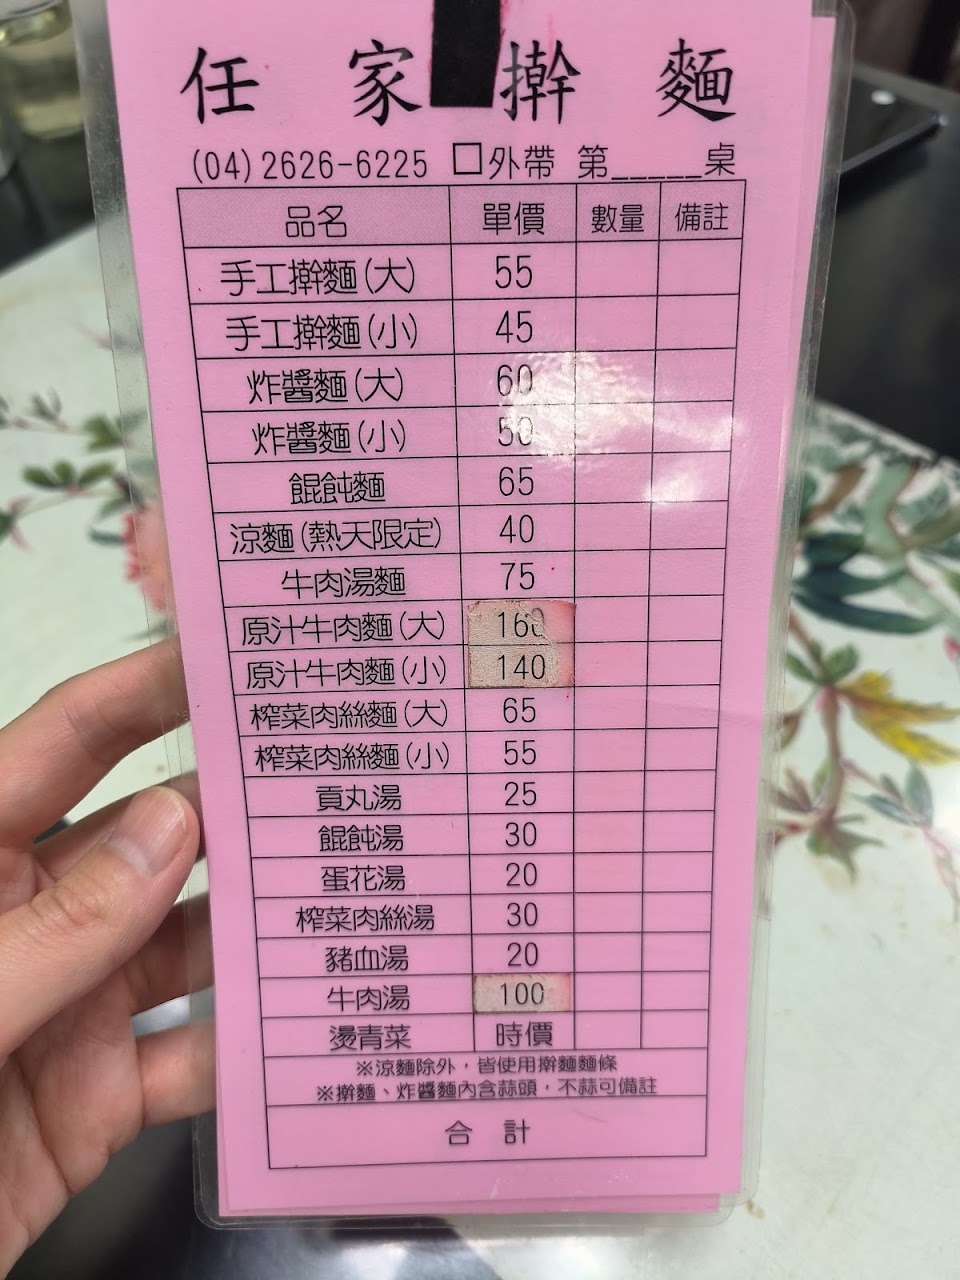 任家擀麵
(04)2626-6225 □外帶 第_____桌
品名 單價 數量 備註
手工擀麵(大) 55
手工擀麵(小) 45
炸醬麵(大) 60
炸醬麵(小) 50
餛飩麵 65
涼麵(熱天限定) 40
牛肉湯麵 75
原汁牛肉麵(大) 160
原汁牛肉麵(小) 140
榨菜肉絲麵(大) 65
榨菜肉絲麵(小) 55
貢丸湯 25
餛飩湯 30
蛋花湯 20
榨菜肉絲湯 30
豬血湯 20
牛肉湯 100
燙青菜 時價
※涼麵除外，皆使用擀麵麵條
※擀麵、炸醬麵內含蒜頭，不蒜可備註
合 計